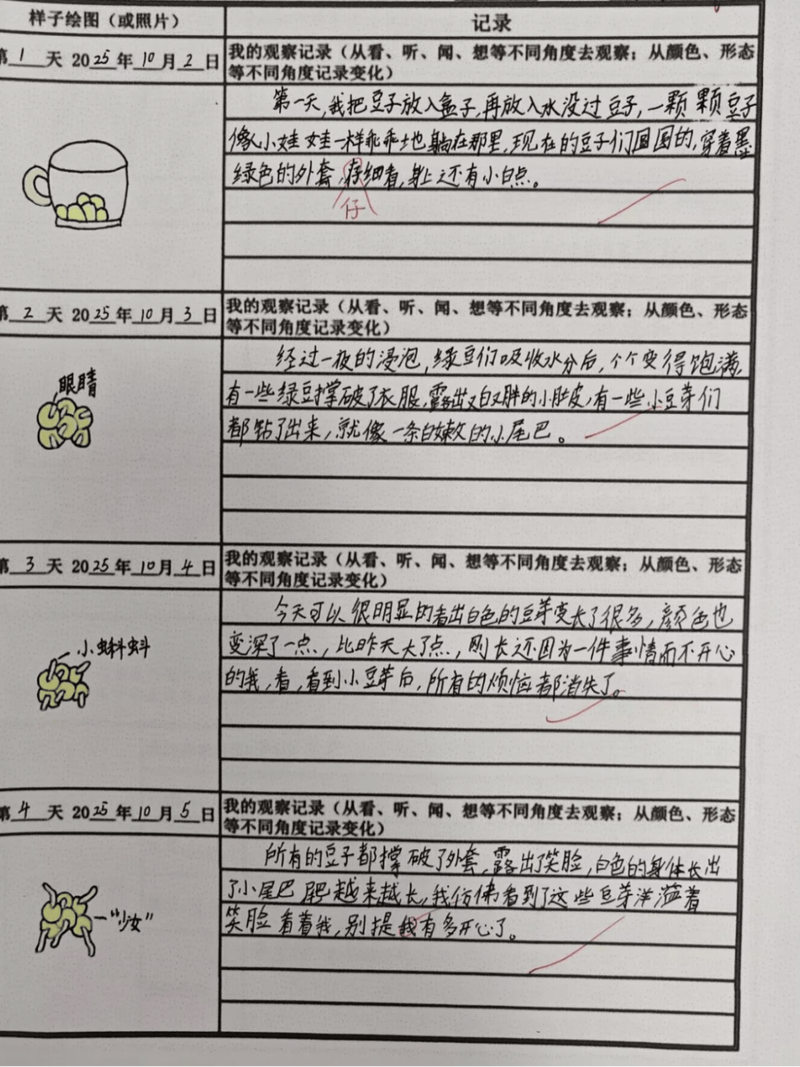 样子绘图（或照片）
记录
第 1 天 2025年10月2日
我的观察记录（从看、听、闻、想等不同角度去观察；从颜色、形态
等不同角度记录变化）
第一天,我把豆子放入盒子,再放入水没过豆子,一颗颗豆子
像小娃娃一样乖乖地躺在那里,现在的豆子们圆圆的,穿着墨
绿色的外套,存细看,身上还有小白点。
仔
第 2 天 2025年10月3日
我的观察记录（从看、听、闻、想等不同角度去观察；从颜色、形态
等不同角度记录变化）
眼睛
经过一夜的浸泡,绿豆们吸收水分后,个个变得饱满,
有一些绿豆撑破了衣服,露出又白又胖的小肚皮,有一些小豆芽们
都钻了出来,就像一条白嫩的小尾巴。
第 3 天 2025年10月4日
我的观察记录（从看、听、闻、想等不同角度去观察；从颜色、形态
等不同角度记录变化）
小蝌蚪
今天可以很明显的看出白色的豆芽变长了很多,颜色也
变深了一点,比昨天大了点,刚长还因为一件事情而不开心
的我,看,看到小豆芽后,所有的烦恼都消失了。
第 4 天 2025年10月5日
我的观察记录（从看、听、闻、想等不同角度去观察；从颜色、形态
等不同角度记录变化）
“少女”
所有的豆子都撑破了外套,露出了笑脸,白色的身体长出
了小尾巴 越来越长,我仿佛看到了这些豆芽洋溢着
笑脸看着我,别提我有多开心了。